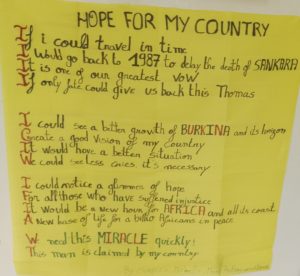 HOPE FOR MY COUNTRY
If i could travel in time
I would go back to 1987 to delay the death of SANKARA
It is one of our greatest vow
If only fate could give us back this Thomas
I could see a better growth of BURKINA and its horizon
Create a good Vision of my Country
It would have a better situation
We could see less cries, it's necessary
I could notice a glimmer of hope
For all those who have suffered injustice
It would be a new hour for AFRICA and all its coast
A new base of life for a better Africans in peace
We need this MIRACLE quickly!
This man is claimed by my country